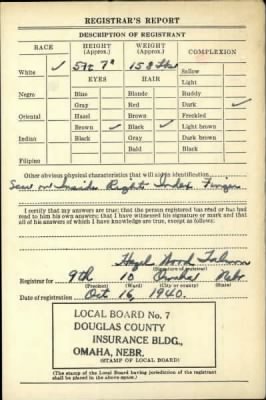 REGISTRAR'S REPORT
DESCRIPTION OF REGISTRANT
RACE HEIGHT (Approx.) WEIGHT (Approx.) COMPLEXION
White ✓ 5 ft 7" 158 lbs Sallow
EYES HAIR Light
Negro Blue Blonde Ruddy
Gray Red Dark ✓
Oriental Hazel Brown Freckled
Brown ✓ Black ✓ Light brown
Indian Black Gray Dark brown
Bald Black
Filipino
Other obvious physical characteristics that will aid in identification
Scar on Inside Right Index Finger
I certify that my answers are true; that the person registered has read or has had
read to him his own answers; that I have witnessed his signature or mark and that
all of his answers of which I have knowledge are true, except as follows:
Hazel Wood
(Signature of registrar)
Registrar for 9th 10 Omaha Nebr
(Precinct) (Ward) (City or county) (State)
Date of registration Oct 16, 1940.
LOCAL BOARD No. 7
DOUGLAS COUNTY
INSURANCE BLDG.,
OMAHA, NEBR.
(STAMP OF LOCAL BOARD)
(The stamp of the Local Board having jurisdiction of the registrant
shall be placed in the above space.)